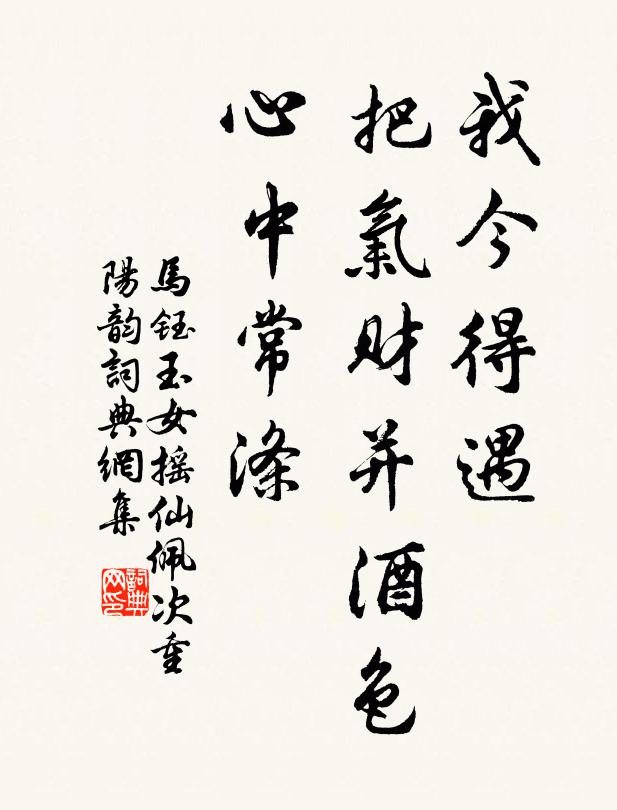 我今得遇
把氣财并酒色
心中常滌
馬鈺玉女摇仙佩次重
陽韵詞典網集
詞典
网印